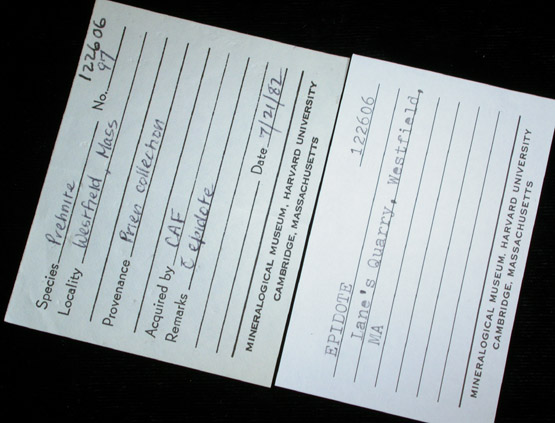 122606
Species Prehnite No. 97
Locality Westfield, Mass
Provenance Prien collection
Acquired by CAF
Remarks c̄ epidote
Date 7/21/82
MINERALOGICAL MUSEUM, HARVARD UNIVERSITY
CAMBRIDGE, MASSACHUSETTS
EPIDOTE 122606
Lane's Quarry, Westfield,
MA
MINERALOGICAL MUSEUM, HARVARD UNIVERSITY
CAMBRIDGE, MASSACHUSETTS